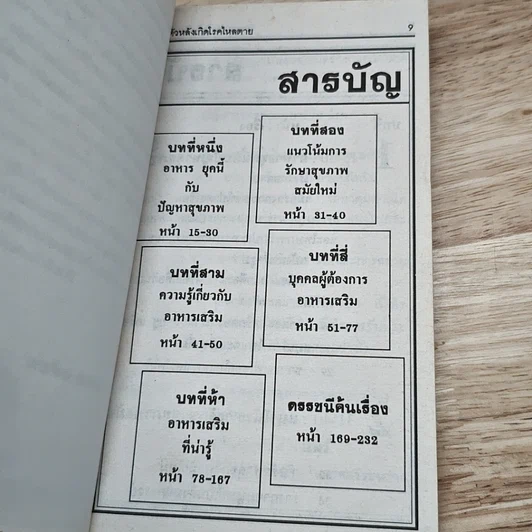 หัวหลังเกิดโรคไหลตาย 9
สารบัญ
บทที่หนึ่ง
อาหาร ยุคนี้
กับ
ปัญหาสุขภาพ
หน้า 15-30
บทที่สอง
แนวโน้มการ
รักษาสุขภาพ
สมัยใหม่
หน้า 31-40
บทที่สาม
ความรู้เกี่ยวกับ
อาหารเสริม
หน้า 41-50
บทที่สี่
บุคคลผู้ต้องการ
อาหารเสริม
หน้า 51-77
บทที่ห้า
อาหารเสริม
ที่น่ารู้
หน้า 78-167
ดรรชนีค้นเรื่อง
หน้า 169-232